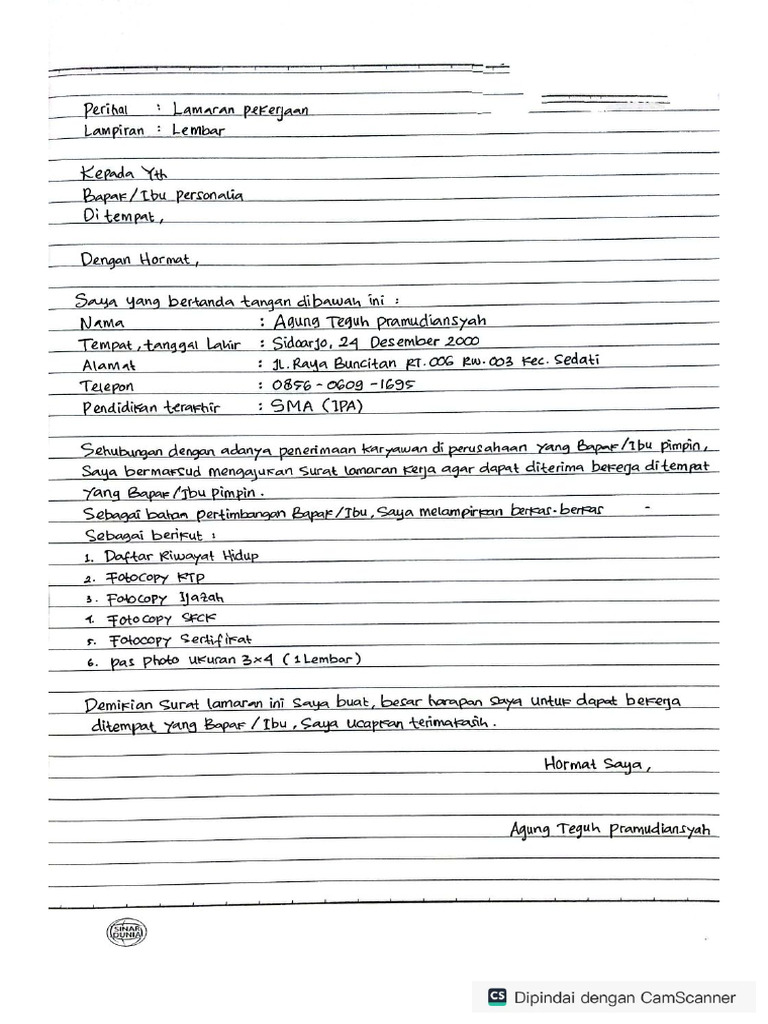 Perihal : Lamaran pekerjaan
Lampiran : Lembar
Kepada Yth
Bapak/Ibu personalia
Di tempat,
Dengan Hormat,
Saya yang bertanda tangan dibawah ini :
Nama : Agung Teguh Pramudiansyah
Tempat, tanggal Lahir : Sidoarjo, 24 Desember 2000
Alamat : JL. Raya Buncitan RT.006 RW.003 Kec. Sedati
Telepon : 0856-0609-1695
Pendidikan terakhir : SMA (IPA)
Sehubungan dengan adanya penerimaan karyawan di perusahaan yang Bapak/Ibu pimpin,
Saya bermaksud mengajukan Surat lamaran kerja agar dapat diterima bekerja di tempat
yang Bapak/Ibu pimpin.
Sebagai bahan pertimbangan Bapak/Ibu, Saya melampirkan berkas-berkas -
Sebagai berikut :
1. Daftar Riwayat Hidup
2. Fotocopy KTP
3. Fotocopy Ijazah
4. Fotocopy SKCK
5. Fotocopy Sertifikat
6. pas photo ukuran 3x4 (1 Lembar)
Demikian Surat lamaran ini Saya buat, besar harapan Saya untuk dapat bekerja
ditempat yang Bapak/Ibu, Saya ucapkan terimakasih.
Hormat Saya,
Agung Teguh Pramudiansyah
SINAR
DUNIA
CS Dipindai dengan CamScanner